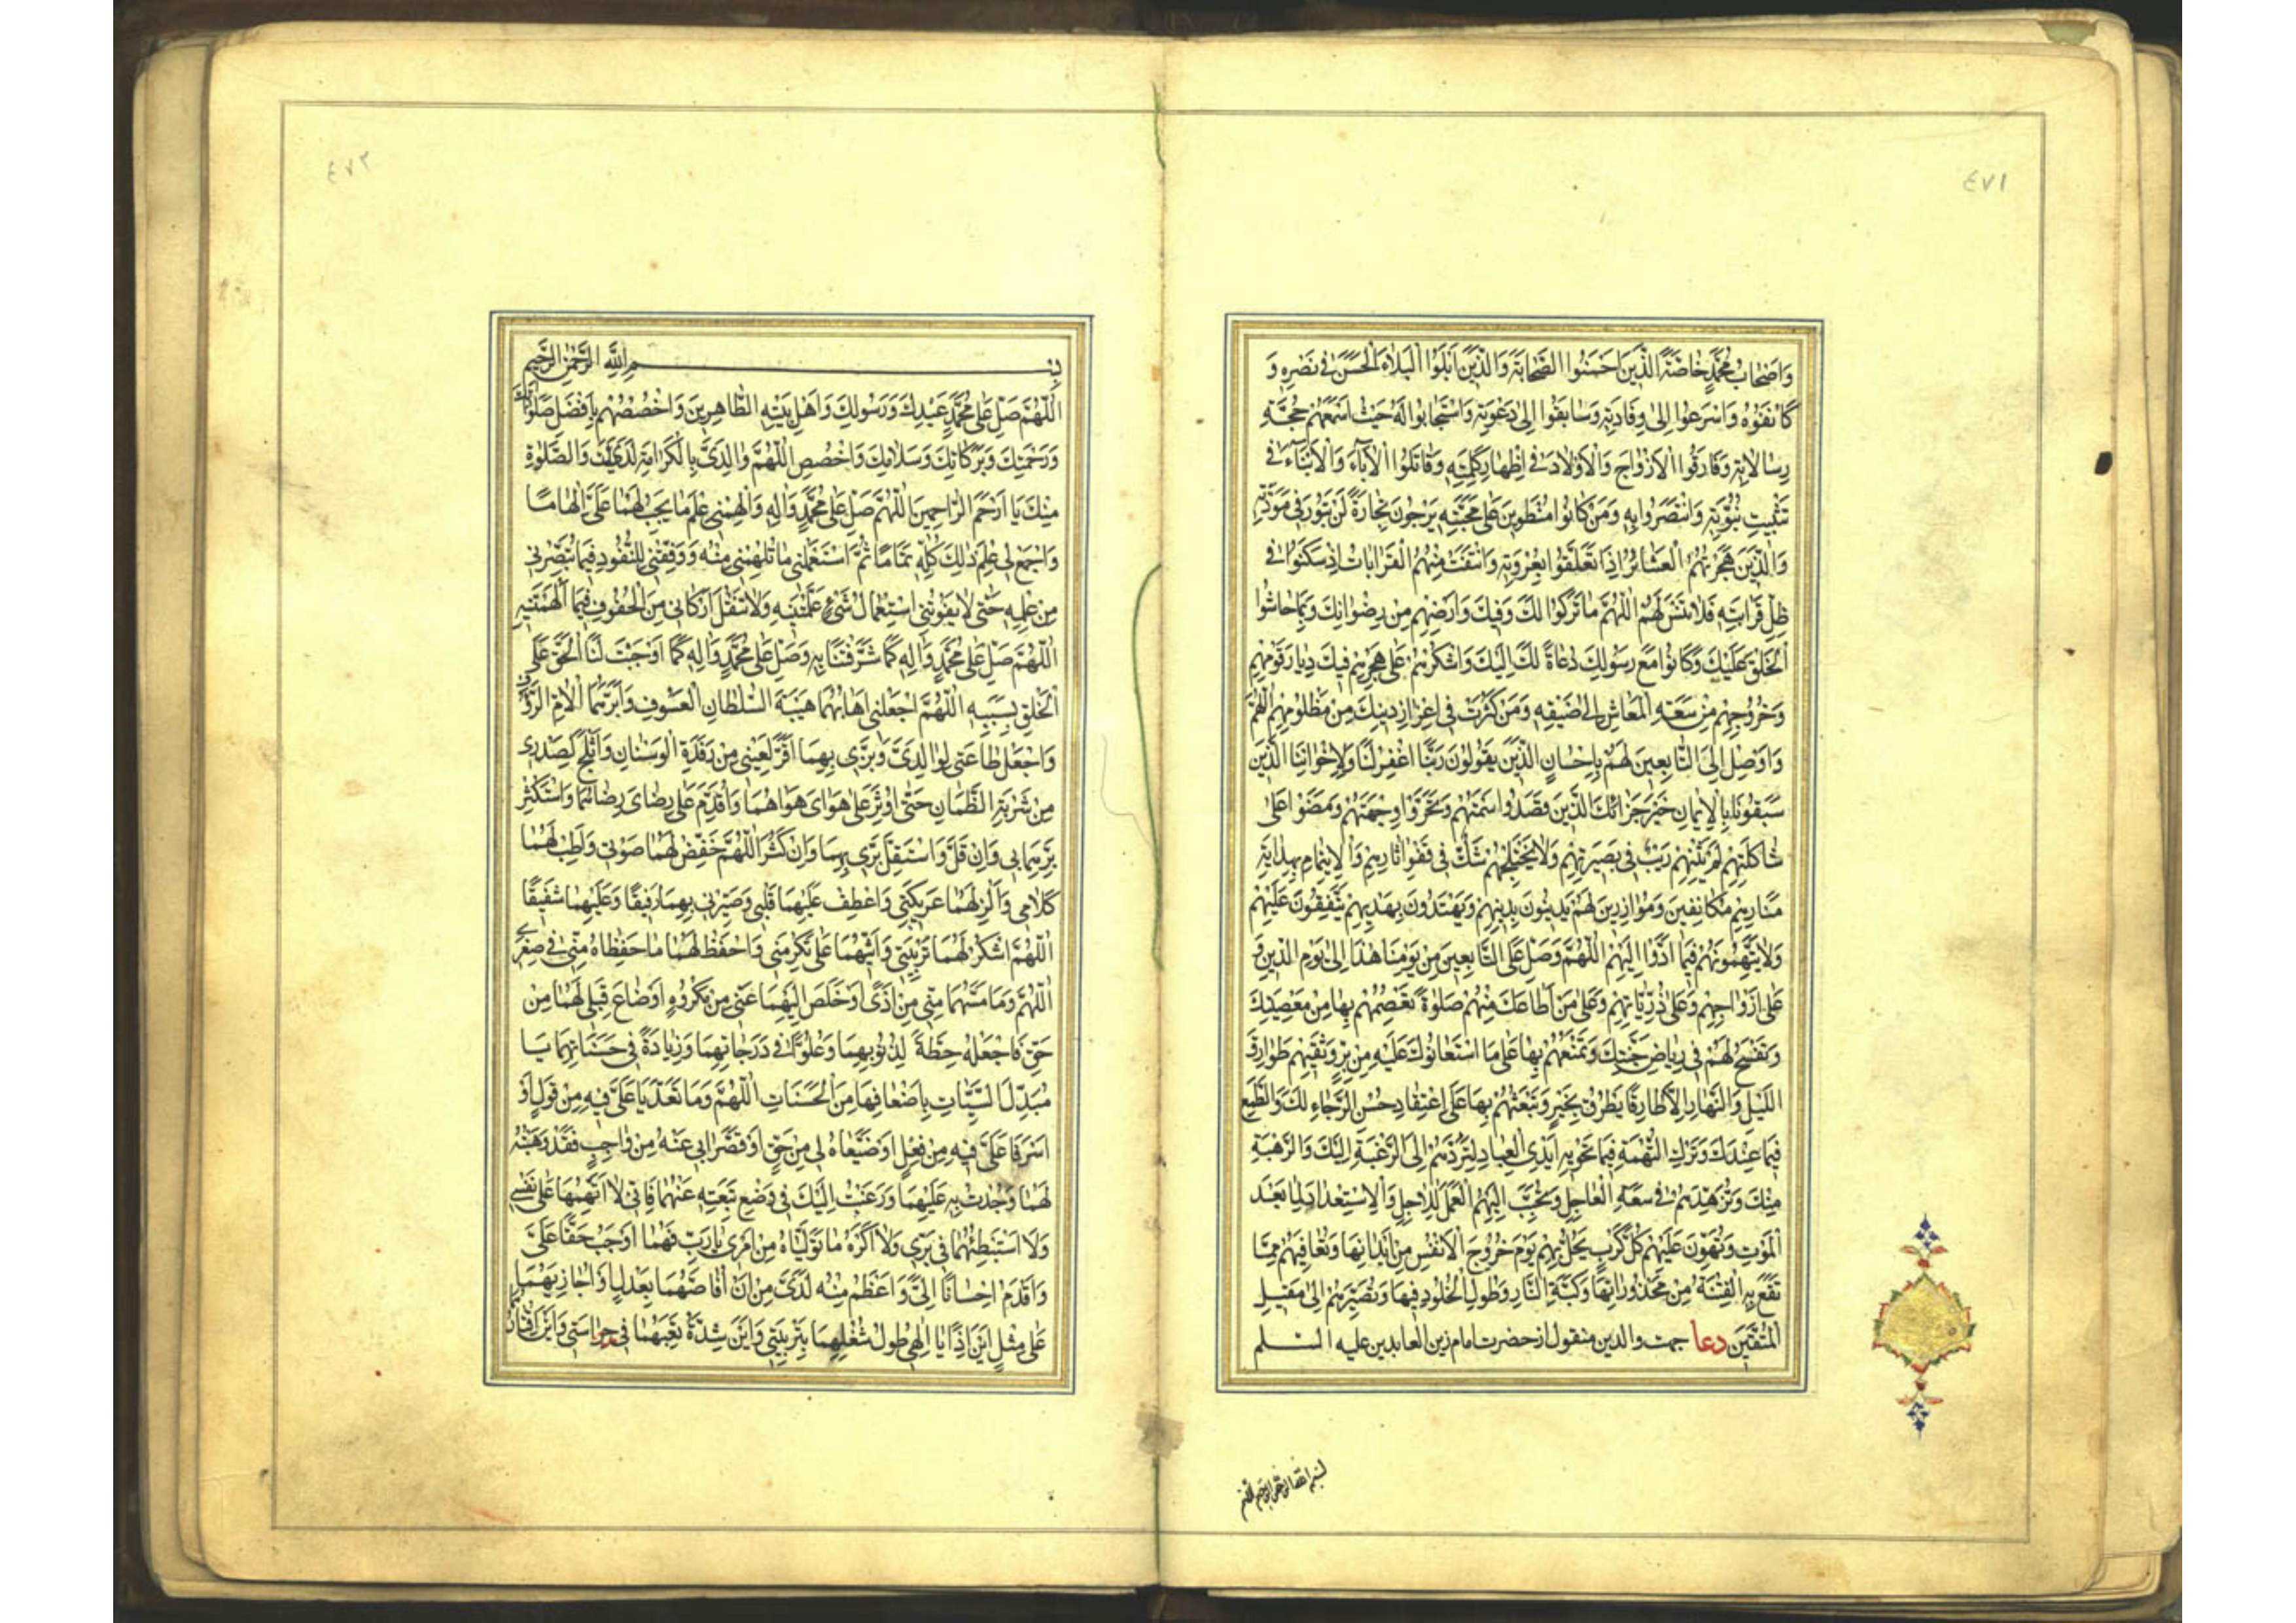 ٤٧١
وَاَصْحَابُ مُحَمَّدٍ خَاصَّةً الَّذِينَ اَحْسَنُوا الصَّحَابَةَ وَالَّذِينَ اَبْلَوُا الْبَلَاءَ الْحَسَنَ فِي نَصْرِهِ وَ
كَانَفُوهُ وَاَسْرَعُوا اِلَى وِفَادَتِهِ وَسَابَقُوا اِلَى دَعْوَتِهِ وَاسْتَجَابُوا لَهُ حَيْثُ اَسْمَعَهُمْ حُجَّةَ
رِسَالَاتِهِ وَفَارَقُوا الْاَزْوَاجَ وَالْاَوْلَادَ فِي اِظْهَارِ كَلِمَتِهِ وَقَاتَلُوا الْآبَاءَ وَالْاَبْنَاءَ فِي
تَثْبِيتِ نُبُوَّتِهِ وَانْتَصَرُوا بِهِ وَمَنْ كَانُوا مُنْطَوِينَ عَلَى مَحَبَّتِهِ يَرْجُونَ تِجَارَةً لَنْ تَبُورَ فِي مَوَدَّتِهِ
وَالَّذِينَ هَجَرَتْهُمُ الْعَشَائِرُ اِذَا تَعَلَّقُوا بِعُرْوَتِهِ وَانْتَفَتْ مِنْهُمُ الْقَرَابَاتُ اِذْ سَكَنُوا فِي
ظِلِّ قَرَابَتِهِ فَلَا تَنْسَ لَهُمُ اللّٰهُمَّ مَا تَرَكُوا لَكَ وَفِيكَ وَاَرْضِهِمْ مِنْ رِضْوَانِكَ وَبِمَا حَاشُوا
الْخَلْقَ عَلَيْكَ وَكَانُوا مَعَ رَسُولِكَ دُعَاةً لَكَ اِلَيْكَ وَاشْكُرْهُمْ عَلَى هَجْرِهِمْ فِيكَ دِيَارَ قَوْمِهِمْ
وَخُرُوجِهِمْ مِنْ سَعَةِ الْمَعَاشِ اِلَى ضَيْقِهِ وَمَنْ كَثَّرْتَ فِي اِعْزَازِ دِينِكَ مِنْ مَظْلُومِهِمْ اللّٰهُمَّ
وَاَوْصِلْ اِلَى التَّابِعِينَ لَهُمْ بِاِحْسَانٍ الَّذِينَ يَقُولُونَ رَبَّنَا اغْفِرْ لَنَا وَلِاِخْوَانِنَا الَّذِينَ
سَبَقُونَا بِالْاِيمَانِ خَيْرَ جَزَائِكَ الَّذِينَ قَصَدُوا سَمْتَهُمْ وَتَحَرَّوْا وِجْهَتَهُمْ وَمَضَوْا عَلَى
شَاكِلَتِهِمْ لَمْ يَثْنِهِمْ رَيْبٌ فِي بَصِيرَتِهِمْ وَلَمْ يَخْتَلِجْهُمْ شَكٌّ فِي قَفْوِ اٰثَارِهِمْ وَالْاِيتِمَامِ بِهِدَايَةِ
مَنَارِهِمْ مُكَانِفِينَ وَمُوَازِرِينَ لَهُمْ يَدِينُونَ بِدِينِهِمْ وَيَهْتَدُونَ بِهَدْيِهِمْ يَتَّفِقُونَ عَلَيْهِمْ
وَلَا يَتَّهِمُونَهُمْ فِيمَا اَدَّوْا اِلَيْهِمْ اللّٰهُمَّ وَصَلِّ عَلَى التَّابِعِينَ مِنْ يَوْمِنَا هٰذَا اِلَى يَوْمِ الدِّينِ وَ
عَلَى اَزْوَاجِهِمْ وَعَلَى ذُرِّيَّاتِهِمْ وَعَلَى مَنْ اَطَاعَكَ مِنْهُمْ صَلٰوةً تَعْصِمُهُمْ بِهَا مِنْ مَعْصِيَتِكَ
وَتَفْسَحُ لَهُمْ فِي رِيَاضِ جَنَّتِكَ وَتَمْنَعُهُمْ بِهَا عَلَى مَا اسْتَعَانُوكَ عَلَيْهِ مِنْ بِرٍّ وَتَقِيهِمْ طَوَارِقَ
اللَّيْلِ وَالنَّهَارِ اِلَّا طَارِقًا يَطْرُقُ بِخَيْرٍ وَتَبْعَثُهُمْ بِهَا عَلَى اعْتِقَادِ حُسْنِ الرَّجَاءِ لَكَ وَالطَّمَعِ
فِيمَا عِنْدَكَ وَتَرْكِ التُّهْمَةِ فِيمَا تَحْوِيهِ اَيْدِي الْعِبَادِ لِتَرُدَّهُمْ اِلَى الرَّغْبَةِ اِلَيْكَ وَالرَّهْبَةِ
مِنْكَ وَتُزَهِّدَهُمْ فِي سَعَةِ الْعَاجِلِ وَتُحَبِّبَ اِلَيْهِمُ الْعَمَلَ لِلْاٰجِلِ وَالْاِسْتِعْدَادَ لِمَا بَعْدَ
الْمَوْتِ وَتُهَوِّنَ عَلَيْهِمْ كُلَّ كَرْبٍ يَحُلُّ بِهِمْ يَوْمَ خُرُوجِ الْاَنْفُسِ مِنْ اَبْدَانِهَا وَتُعَافِيَهُمْ مِمَّا
تَقَعُ بِهِ الْفِتْنَةُ مِنْ مَحْذُورَاتِهَا وَكَبَّةِ النَّارِ وَطُولِ الْخُلُودِ فِيهَا وَتُصَيِّرَهُمْ اِلَى مَقِيلِ
الْمُتَّقِينَ دعا جهت والدين منقول از حضرت امام زين العابدين عليه السلم
بسم الله الرحمن الرحيم اللهم
٤٧٢
بِسْمِ اللّٰهِ الرَّحْمٰنِ الرَّحِيمِ
اَللّٰهُمَّ صَلِّ عَلَى مُحَمَّدٍ عَبْدِكَ وَرَسُولِكَ وَاَهْلِ بَيْتِهِ الطَّاهِرِينَ وَاخْصُصْهُمْ بِاَفْضَلِ صَلَوَاتِكَ
وَرَحْمَتِكَ وَبَرَكَاتِكَ وَسَلَامِكَ وَاخْصُصِ اللّٰهُمَّ وَالِدَيَّ بِالْكَرَامَةِ لَدَيْكَ وَالصَّلٰوةِ
مِنْكَ يَا اَرْحَمَ الرَّاحِمِينَ اَللّٰهُمَّ صَلِّ عَلَى مُحَمَّدٍ وَاٰلِهِ وَاَلْهِمْنِي عِلْمَ مَا يَجِبُ لَهُمَا عَلَيَّ اِلْهَامًا
وَاجْمَعْ لِي عِلْمَ ذٰلِكَ كُلِّهِ تَمَامًا ثُمَّ اسْتَعْمِلْنِي مَا تُلْهِمُنِي مِنْهُ وَوَفِّقْنِي لِلنُّفُوذِ فِيمَا تُبَصِّرُنِي
مِنْ عِلْمِهِ حَتَّى لَا يَفُوتَنِي اسْتِعْمَالُ شَيْءٍ عَلَّمْتَنِيهِ وَلَا تَثْقُلَ اَرْكَانِي مِنَ الْحُفُوفِ فِيمَا اَلْهَمْتَنِيهِ
اَللّٰهُمَّ صَلِّ عَلَى مُحَمَّدٍ وَاٰلِهِ كَمَا شَرَّفْتَنَا بِهِ وَصَلِّ عَلَى مُحَمَّدٍ وَاٰلِهِ كَمَا اَوْجَبْتَ لَنَا الْحَقَّ عَلَى
الْخَلْقِ بِسَبَبِهِ اَللّٰهُمَّ اجْعَلْنِي اَهَابُهُمَا هَيْبَةَ السُّلْطَانِ الْعَسُوفِ وَاَبَرُّهُمَا بِرَّ الْاُمِّ الرَّؤُفِ
وَاجْعَلْ طَاعَتِي لِوَالِدَيَّ وَبِرِّي بِهِمَا اَقَرَّ لِعَيْنِي مِنْ رَقْدَةِ الْوَسْنَانِ وَاَثْلَجَ لِصَدْرِي
مِنْ شَرْبَةِ الظَّمْاٰنِ حَتَّى اُوثِرَ عَلَى هَوَايَ هَوَاهُمَا وَاُقَدِّمَ عَلَى رِضَايَ رِضَاهُمَا وَاَسْتَكْثِرَ
بِرَّهُمَا بِي وَاِنْ قَلَّ وَاَسْتَقِلَّ بِرِّي بِهِمَا وَاِنْ كَثُرَ اَللّٰهُمَّ خَفِّضْ لَهُمَا صَوْتِي وَاَطِبْ لَهُمَا
كَلَامِي وَاَلِنْ لَهُمَا عَرِيكَتِي وَاعْطِفْ عَلَيْهِمَا قَلْبِي وَصَيِّرْنِي بِهِمَا رَفِيقًا وَعَلَيْهِمَا شَفِيقًا
اَللّٰهُمَّ اشْكُرْ لَهُمَا تَرْبِيَتِي وَاَثِبْهُمَا عَلَى تَكْرِمَتِي وَاحْفَظْ لَهُمَا مَا حَفِظَاهُ مِنِّي فِي صِغَرِي
اَللّٰهُمَّ وَمَا مَسَّهُمَا مِنِّي مِنْ اَذًى اَوْ خَلَصَ اِلَيْهِمَا عَنِّي مِنْ مَكْرُوهٍ اَوْ ضَاعَ قِبَلِي لَهُمَا مِنْ
حَقٍّ فَاجْعَلْهُ حِطَّةً لِذُنُوبِهِمَا وَعُلُوًّا فِي دَرَجَاتِهِمَا وَزِيَادَةً فِي حَسَنَاتِهِمَا يَا
مُبَدِّلَ السَّيِّئَاتِ بِاَضْعَافِهَا مِنَ الْحَسَنَاتِ اَللّٰهُمَّ وَمَا تَعَدَّيَا عَلَيَّ فِيهِ مِنْ قَوْلٍ اَوْ
اَسْرَفَا عَلَيَّ فِيهِ مِنْ فِعْلٍ اَوْ ضَيَّعَاهُ لِي مِنْ حَقٍّ اَوْ قَصَّرَا بِي عَنْهُ مِنْ وَاجِبٍ فَقَدْ وَهَبْتُهُ
لَهُمَا وَجُدْتُ بِهِ عَلَيْهِمَا وَرَغِبْتُ اِلَيْكَ فِي وَضْعِ تَبِعَتِهِ عَنْهُمَا فَاِنِّي لَا اَتَّهِمُهُمَا عَلَى نَفْسِي
وَلَا اَسْتَبْطِئُهُمَا فِي بِرِّي وَلَا اَكْرَهُ مَا تَوَلَّيَاهُ مِنْ اَمْرِي يَا رَبِّ فَهُمَا اَوْجَبُ حَقًّا عَلَيَّ
وَاَقْدَمُ اِحْسَانًا اِلَيَّ وَاَعْظَمُ مِنَّةً لَدَيَّ مِنْ اَنْ اُقَاصَّهُمَا بِعَدْلٍ اَوْ اُجَازِيَهُمَا
عَلَى مِثْلٍ اَيْنَ اِذًا يَا اِلٰهِي طُولُ شُغْلِهِمَا بِتَرْبِيَتِي وَاَيْنَ شِدَّةُ تَعَبِهِمَا فِي حِرَاسَتِي وَاَيْنَ اِقْتَارُهُمَا